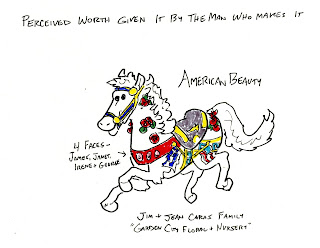 PERCEIVED WORTH GIVEN IT BY THE MAN WHO MAKES IT
AMERICAN BEAUTY
4 FACES -
JAMES, JANET,
IRENE + GEORGE
JIM + JEAN CARAS FAMILY
"GARDEN CITY FLORAL + NURSERY"